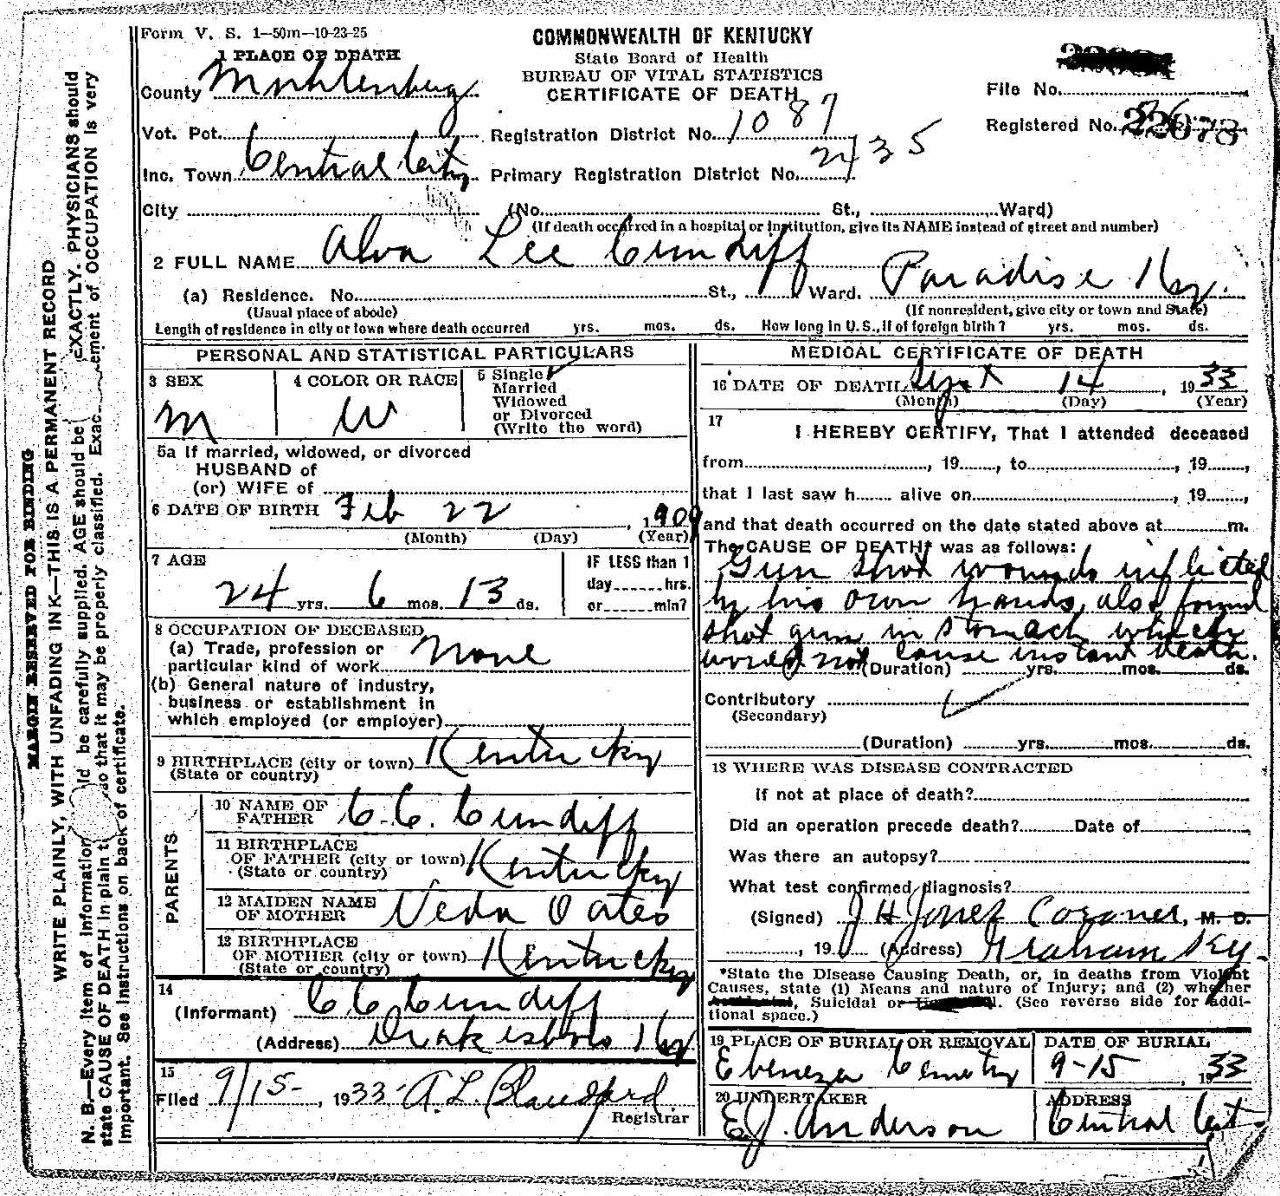 Form V. S. 1—50m—10-23-25
COMMONWEALTH OF KENTUCKY
State Board of Health
BUREAU OF VITAL STATISTICS
CERTIFICATE OF DEATH
1 PLACE OF DEATH
County Muhlenburg
File No.
Vot. Pct. Registration District No. 1087
Registered No. 22073
Inc. Town Central City Primary Registration District No. 2435
City (No. St., Ward)
(If death occurred in a hospital or institution, give its NAME instead of street and number)
2 FULL NAME Alva Lee Cundiff
(a) Residence. No. St., Ward. Paradise Ky.
(Usual place of abode) (If nonresident, give city or town and State)
Length of residence in city or town where death occurred yrs. mos. ds. How long in U.S., if of foreign birth? yrs. mos. ds.
PERSONAL AND STATISTICAL PARTICULARS
3 SEX
M
4 COLOR OR RACE
W
5 Single
Married
Widowed
or Divorced
(Write the word)
5a If married, widowed, or divorced
HUSBAND of
(or) WIFE of
6 DATE OF BIRTH Feb 22, 1909
(Month) (Day) (Year)
7 AGE
24 yrs. 6 mos. 13 ds.
IF LESS than 1
day hrs.
or min?
8 OCCUPATION OF DECEASED
(a) Trade, profession or
particular kind of work None
(b) General nature of industry,
business or establishment in
which employed (or employer)
9 BIRTHPLACE (city or town) Kentucky
(State or country)
PARENTS
10 NAME OF
FATHER C.C. Cundiff
11 BIRTHPLACE
OF FATHER (city or town) Kentucky
(State or country)
12 MAIDEN NAME
OF MOTHER Veda Oates
13 BIRTHPLACE
OF MOTHER (city or town) Kentucky
(State or country)
14
(Informant) CC Cundiff
(Address) Drakesboro Ky
15
Filed 9/15-, 1933. A. L. Blandford
Registrar
MEDICAL CERTIFICATE OF DEATH
16 DATE OF DEATH Sept 14, 1933
(Month) (Day) (Year)
17
I HEREBY CERTIFY, That I attended deceased
from , 19 , to , 19 ,
that I last saw h alive on , 19 ,
and that death occurred on the date stated above at m.
The CAUSE OF DEATH* was as follows:
Gun shot wounds inflicted
by his own hands, also found
shot gun in stomach which
would not cause instant death.
(Duration) yrs. mos. ds.
Contributory
(Secondary)
(Duration) yrs. mos. ds.
18 WHERE WAS DISEASE CONTRACTED
If not at place of death?
Did an operation precede death? Date of
Was there an autopsy?
What test confirmed diagnosis?
(Signed) J H Jones Coroner, M. D.
, 19 (Address) Graham Ky.
*State the Disease Causing Death, or, in deaths from Violent
Causes, state (1) Means and nature of Injury; and (2) whether
Accidental, Suicidal or (See reverse side for addi-
tional space.)
19 PLACE OF BURIAL OR REMOVAL
Ebenezer Cemetry
DATE OF BURIAL
9-15, 1933
20 UNDERTAKER
E.J. Anderson
ADDRESS
Central Cit
MARGIN RESERVED FOR BINDING
WRITE PLAINLY, WITH UNFADING INK—THIS IS A PERMANENT RECORD
N. B.—Every item of information should be carefully supplied. AGE should be EXACTLY. PHYSICIANS should
state CAUSE OF DEATH in plain so that it may be properly classified. Exac ement of OCCUPATION is very
important. See instructions on back of certificate.